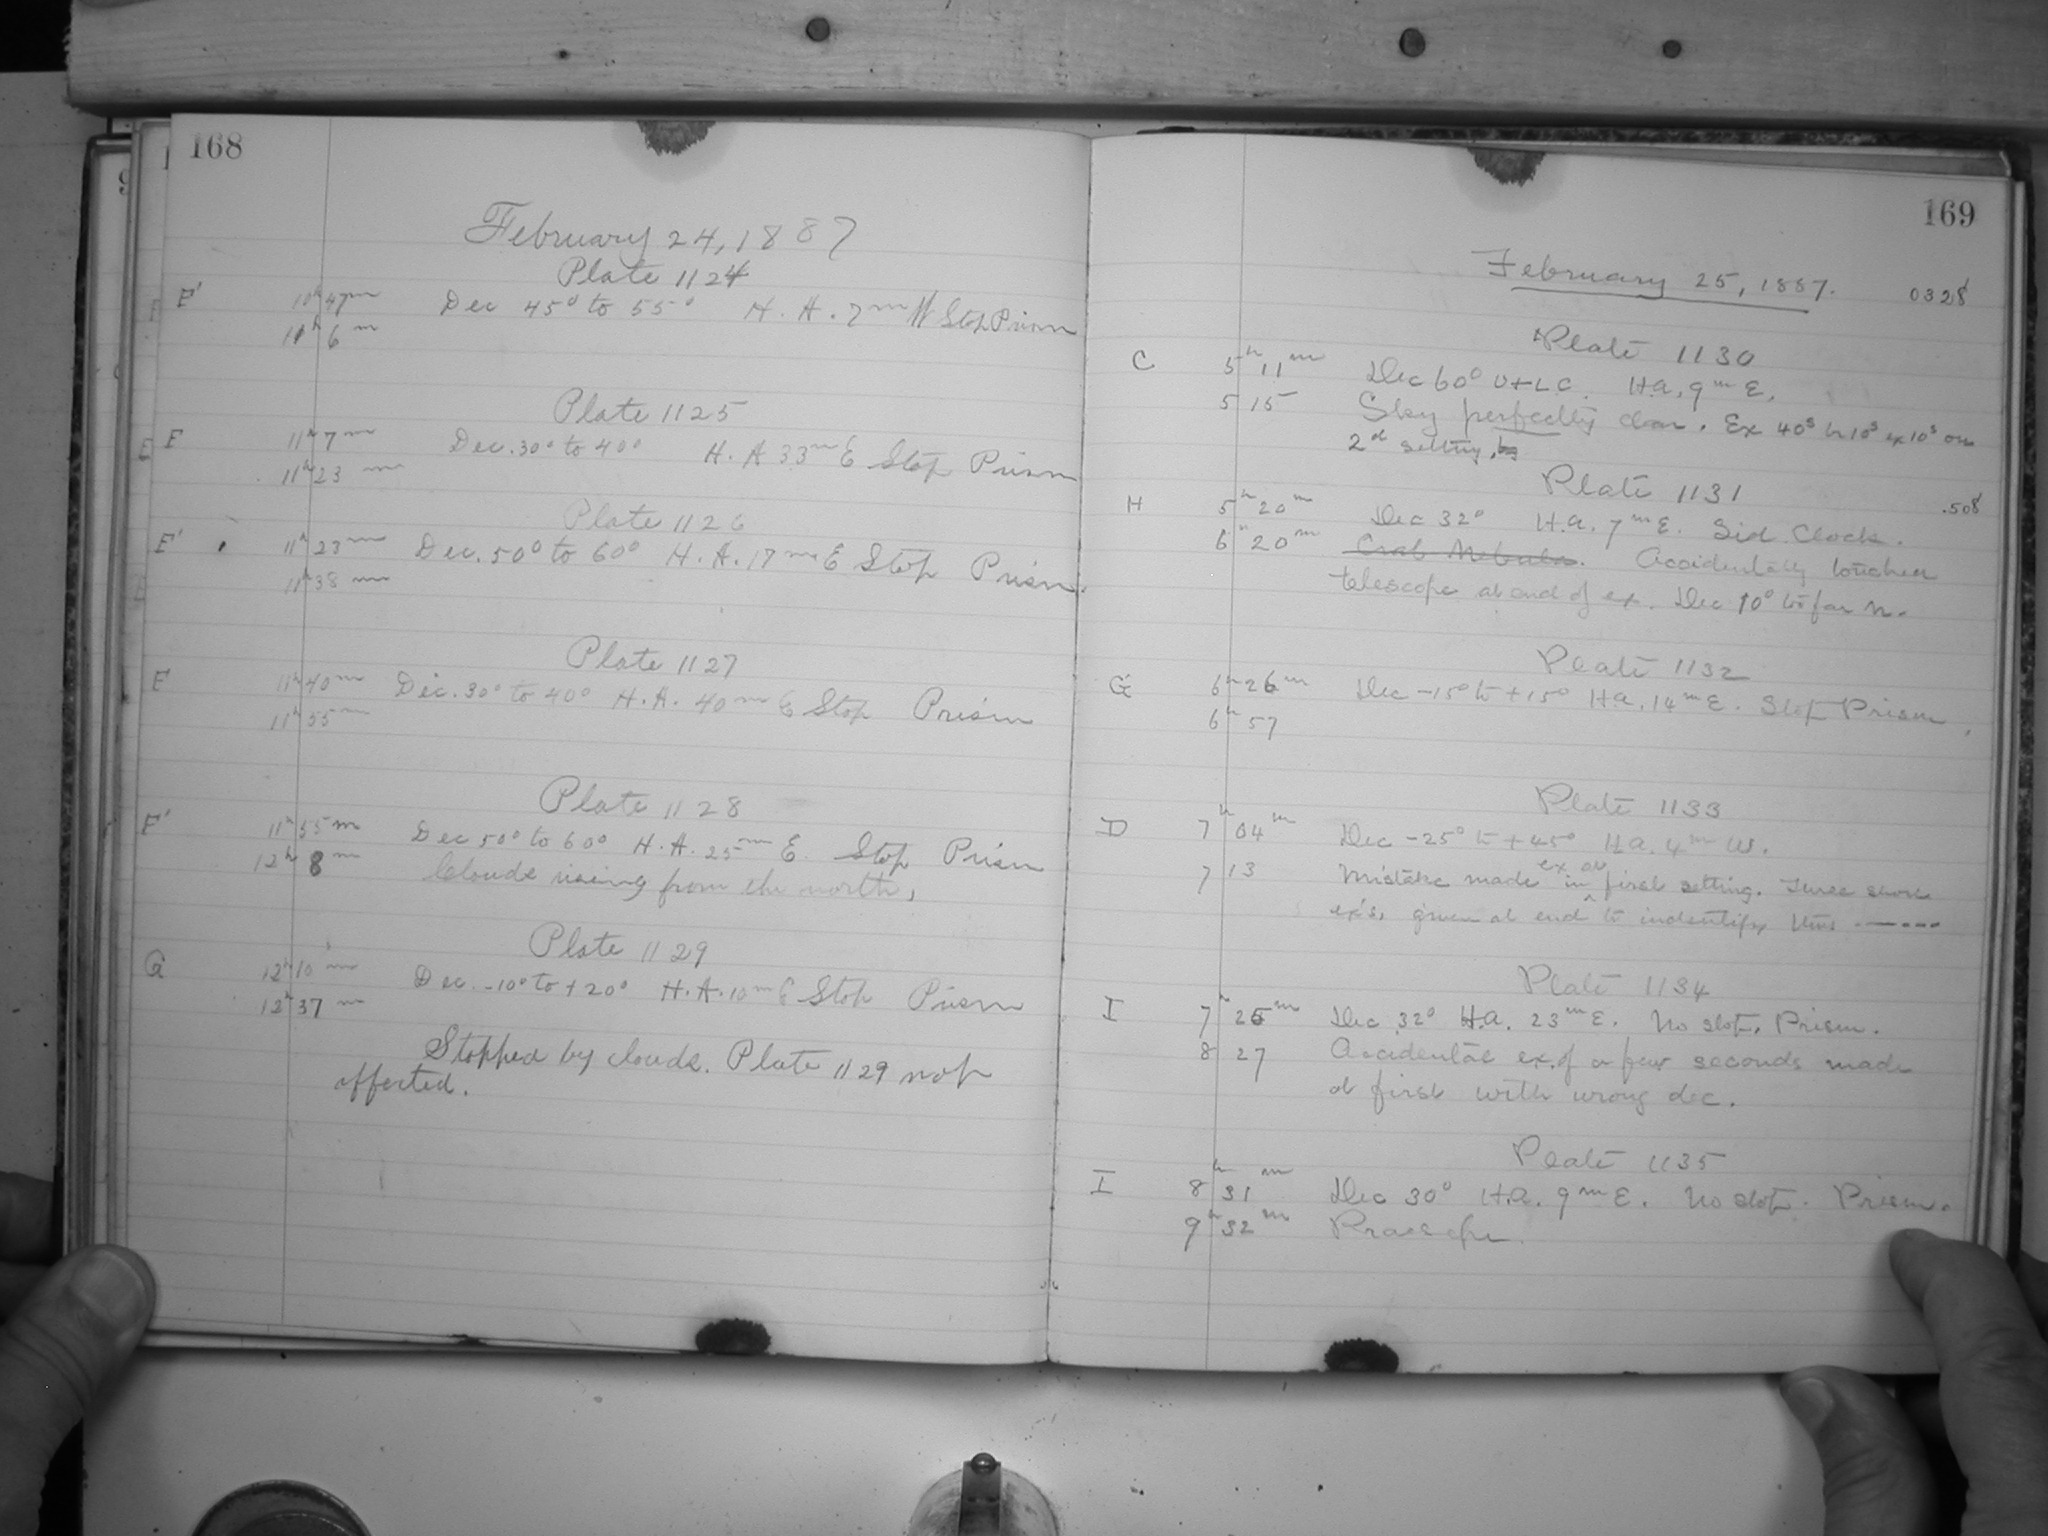 168
February 24, 1887
Plate 1124
F' 10h 47m Dec 45° to 55° H. A. 7m W Stop Prism
11h 6m
Plate 1125
F 11h 7m Dec. 30° to 40° H. A 33m E Stop Prism
11h 23m
Plate 1126
F' 11h 23m Dec. 50° to 60° H. A. 17m E Stop Prism.
11h 38m
Plate 1127
F 11h 40m Dec. 30° to 40° H. A. 40m E Stop Prism
11h 55m
Plate 1128
F' 11h 55m Dec 50° to 60° H. A. 25m E. Stop Prism
12h 8m Clouds rising from the north,
Plate 1129
G 12h 10m Dec. -10° to +20° H. A. 10m E Stop Prism
12h 37m
Stopped by clouds. Plate 1129 not
affected.
169
February 25, 1887. 0328
Plate 1130
C 5h 11m Dec 60° U+LC. H.a. 9m E.
5 15 Sky perfectly clear. Ex 40s 10s ex 10s on
2d setting,
Plate 1131 .508
H 5h 20m Dec 32° H.a. 7m E. Sid. Clock.
6h 20m Crab Nebula. Accidentally touched
telescope at end of ex. Dec 10° too far n.
Plate 1132
G 6h 26m Dec -15° to +15° H.a. 14m E. Stop Prism.
6h 57
Plate 1133
D 7h 04m Dec -25° to +45° H.a. 4m W.
7 13 Mistake made in ex. on first setting. Three short
ex's. given at end to indentify this
Plate 1134
I 7h 25m Dec 32° H.a. 23m E. No stop. Prism.
8 27 Accidental ex. of a few seconds made
at first with wrong dec.
Plate 1135
I 8h 31m Dec 30° H.a. 9m E. No stop. Prism.
9h 32m Praesepe.